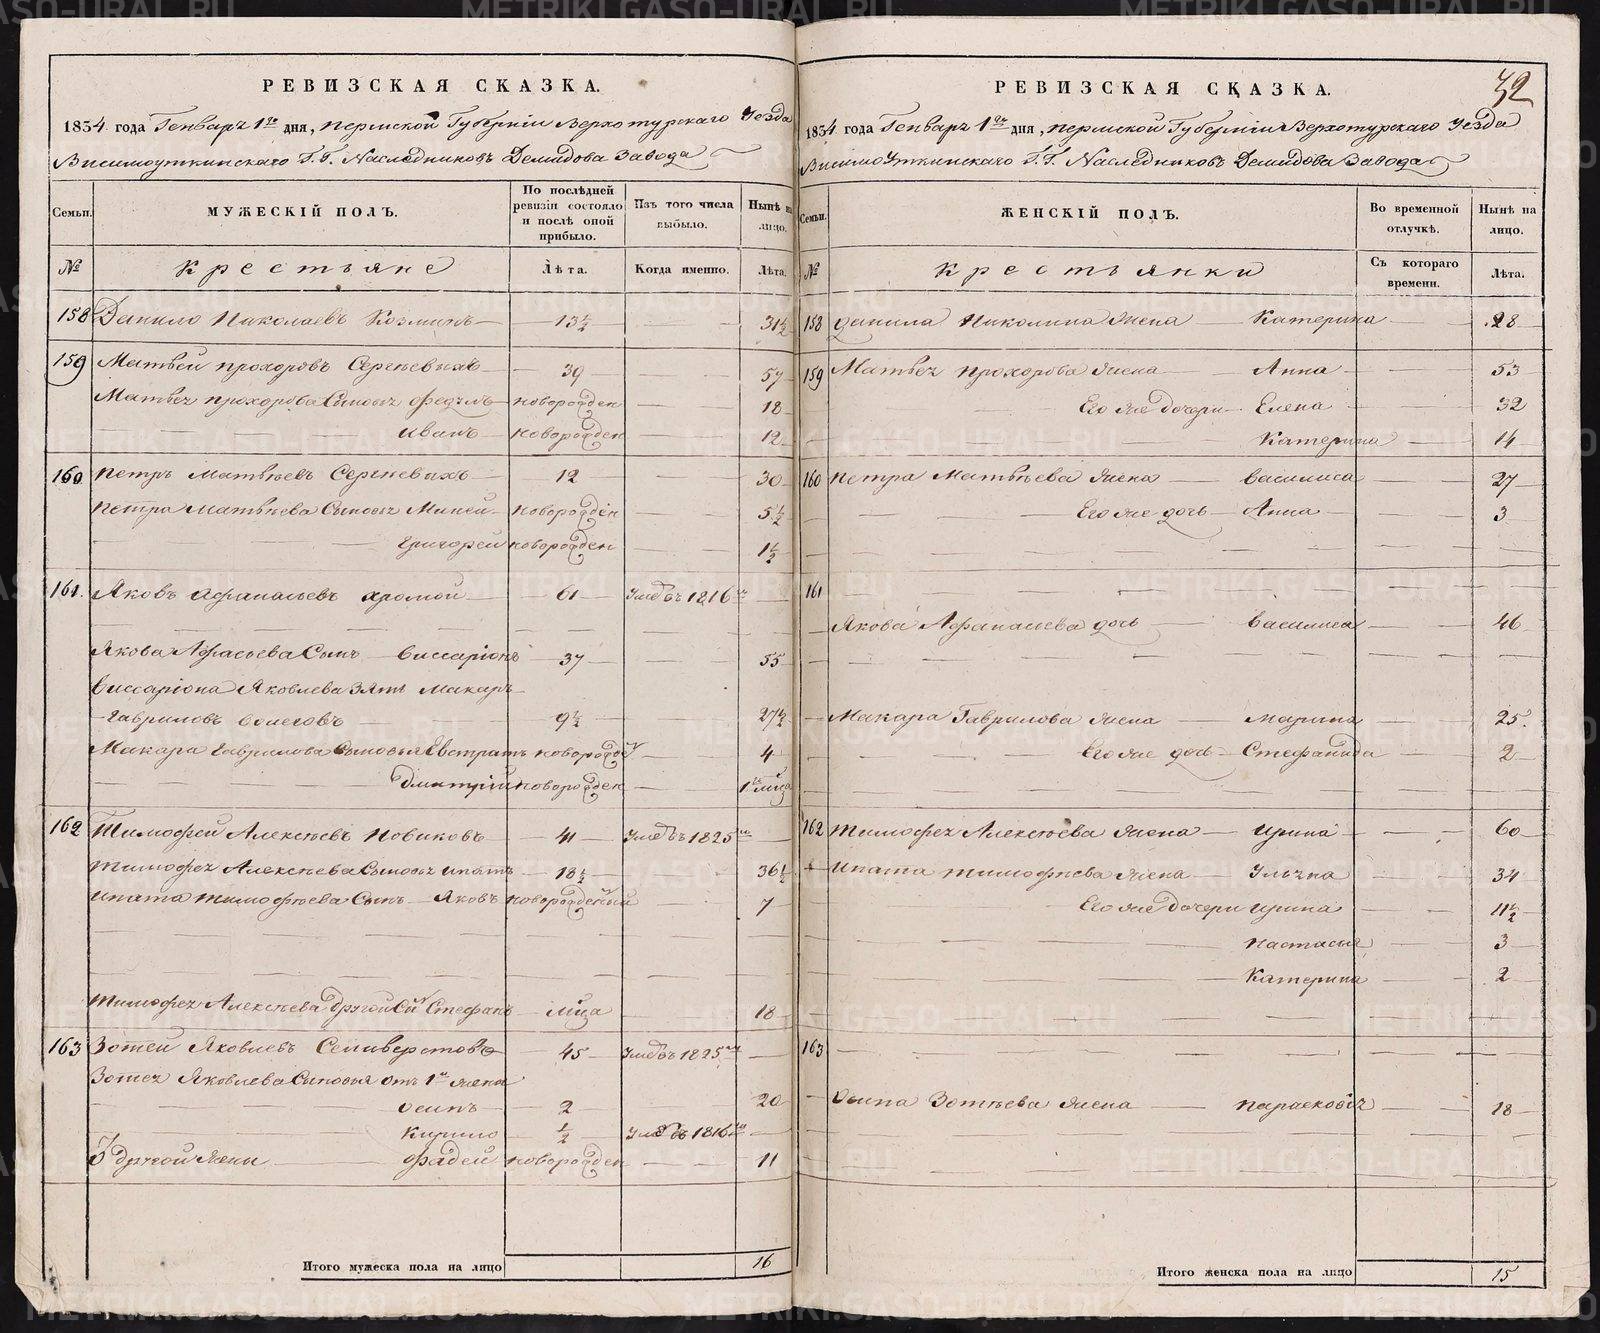 РЕВИЗСКАЯ СКАЗКА.
1834 года Генваря 1го дня, Пермской Губернiи Верхотурскаго Уезда
Висимоуткинскаго Г.Г. Наследниковъ Демидова Завода
Семьи. МУЖЕСКIЙ ПОЛЪ. По послѣдней ревизiи состояло и послѣ оной прибыло. Изъ того числа выбыло. Нынѣ на лицо.
№ Крестьяне Лѣта. Когда именно. Лѣта.
158 Данило Николаевъ Козминъ 13½ 31½
159 Матвей Прохоровъ Сергѣевыхъ 39 57
Матвея Прохорова Сыновья Федулъ новорожден 18
Иванъ новорожден 12
160 Петръ Матвѣевъ Сергѣевыхъ 12 30
Петра Матвѣева Сыновья Миней новорожден 5½
Григорей новорожден 1½
161. Яковъ Афанасьевъ Хромой 61 Умеръ въ 1816
Якова Афасьева Сынъ Виссарiонъ 37 55
Виссарiона Яковлева Зять Макаръ
Гавриловъ 9½ 27½
Макара Гаврилова Сыновья Евстратъ новорожд 4
Дмитрiй новорожден
162 Тимофей Алексѣевъ Новиковъ 41 Умеръ въ 1825
Тимофея Алексѣева Сыновья Ипатъ 18½ 36½
Ипата Тимофѣева Сынъ Яковъ новорожденый 7
Тимофея Алексѣева другой Сын Стефанъ 18
163 Зотей Яковлевъ Селиверстовъ 45 Умеръ въ 1825
Зотея Яковлева Сыновья отъ 1й жены
Осипъ 2 20
Кирило ½ Умеръ въ 1816
З другой жены Фадей новорожден 11
Итого мужеска пола на лицо 16
32
РЕВИЗСКАЯ СКАЗКА.
1834 года Генваря 1го дня, Пермской Губернiи Верхотурскаго Уезда
Висимо Уткинскаго Г.Г. Наследниковъ Демидова Завода
Семьи. ЖЕНСКIЙ ПОЛЪ. Во временной отлучкѣ. Нынѣ на лицо.
№ Крестьянки Съ котораго времени. Лѣта.
158 Данила Николина жена Катерина 28
159 Матвея Прохорова жена Анна 53
Его же дочери Елена 32
Катерина 14
160 Петра Матвѣева жена Василиса 27
Его же дочь Анна 3
161
Якова Афанасьева дочь Василиса 46
Макара Гаврилова жена Марина 25
Его же дочь Стефанида 2
162 Тимофея Алексѣева жена Ирина 60
Ипата Тимофѣева жена Ульяна 34
Его же дочери Ирина 11½
Настасья 3
Катерина 2
163
Осипа Зотѣева жена Парасковiя 18
Итого женска пола на лицо 15
METRIKI.GASO-URAL.RU